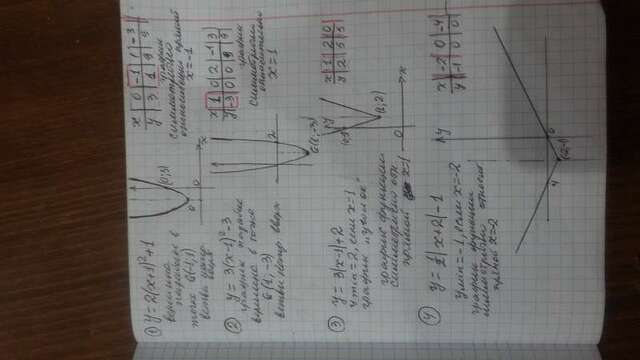 ① y = 2(x+1)²+1
вершина
параболы в
точке G(-1;1)
ветви напр.
вверх
(0;3)
0
x
x 0 -1 1 -3
y 3 1 9 9
график
симметричен
относительно прямой
x = -1
② y = 3(x-1)²-3
график парабола
вершина в точке
G(1; -3)
ветви напр вверх
2
G(1,-3)
x 1 0 2 -1 3
y -3 0 0 9 9
график
симметричен
относительно
x = 1
③ y = 3|x-1|+2
y min = 2, если x=1
график "уголок"
график функции
симметричен отн.
прямой x=1
y
(1;2)
0
x
x 1 2 0
y 2 5 5
④ y = ½|x+2|-1
y min = -1, если x=-2
график функции
симметричен относ.
прямой x=-2
y
x -2 0 -4
y -1 0 0
-4
(-2;-1)
0